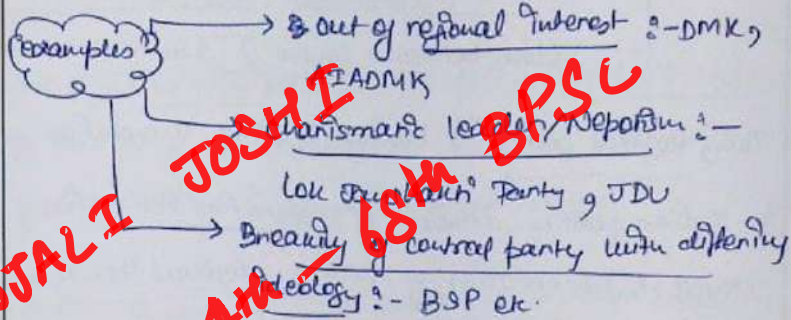 examples
out of regional interest :- DMK,
AIADMK
Charismatic leader/Nepotism :-
Lok Janshakti Party, JDU
Breaking of central party with differing
ideology :- BSP etc.
JALI JOSHI
68th BPSC